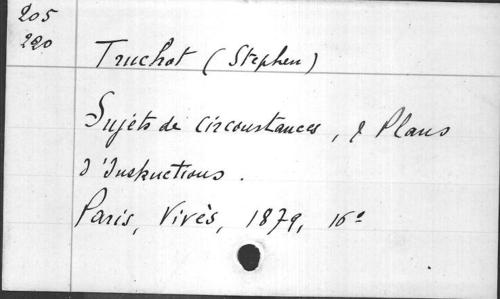 205
220
Truchot (Stephen)
Sujets de circonstances, & Plans
d'Instructions.
Paris, Vivès, 1879, 16º